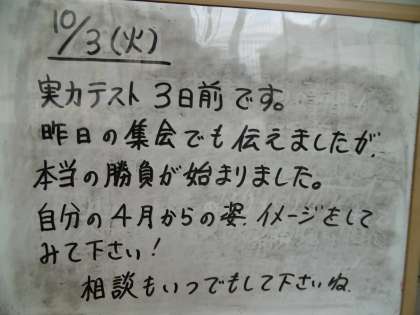 10/3(火)
実力テスト3日前です。
昨日の集会でも伝えましたが、
本当の勝負が始まりました。
自分の4月からの姿、イメージをして
みて下さい!
相談もいつでもして下さいね。